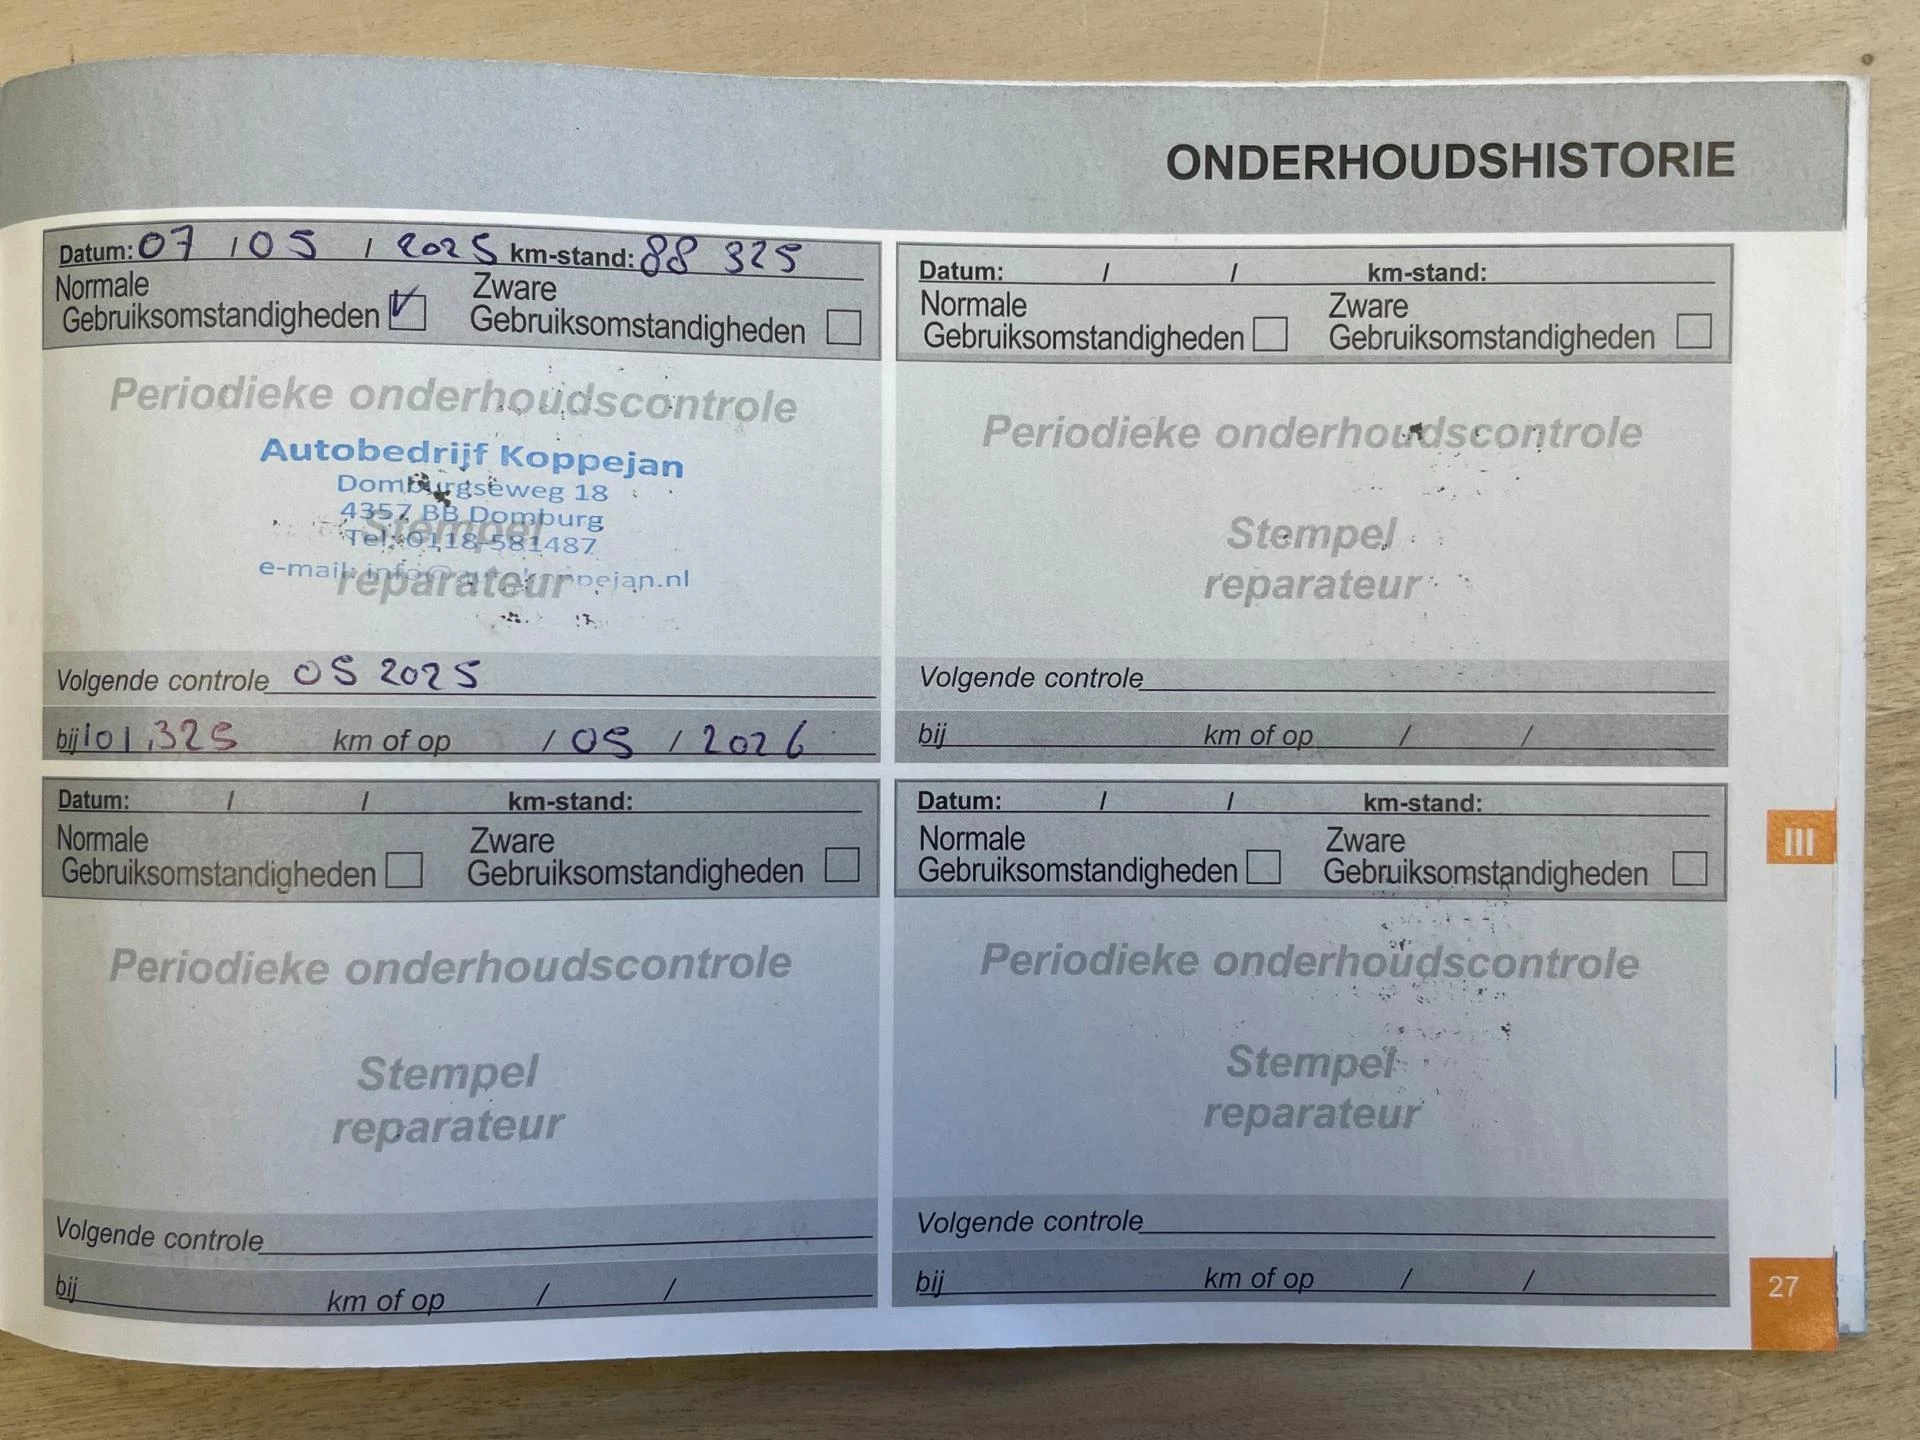 ONDERHOUDSHISTORIE
Datum: 07 / 05 / 2025 km-stand: 88 325
Normale Zware
Gebruiksomstandigheden Gebruiksomstandigheden
Periodieke onderhoudscontrole
Autobedrijf Koppejan
Domburgseweg 18
4357 BB Domburg
Stempel
Tel: 0118-581487
e-mail: info@autokoppejan.nl
reparateur
Volgende controle 05 2025
bij 101.325 km of op / 05 / 2026
Datum: / / km-stand:
Normale Zware
Gebruiksomstandigheden Gebruiksomstandigheden
Periodieke onderhoudscontrole
Stempel
reparateur
Volgende controle
bij km of op / /
Datum: / / km-stand:
Normale Zware
Gebruiksomstandigheden Gebruiksomstandigheden
Periodieke onderhoudscontrole
Stempel
reparateur
Volgende controle
bij km of op / /
Datum: / / km-stand:
Normale Zware
Gebruiksomstandigheden Gebruiksomstandigheden
Periodieke onderhoudscontrole
Stempel
reparateur
Volgende controle
bij km of op / /
III
27